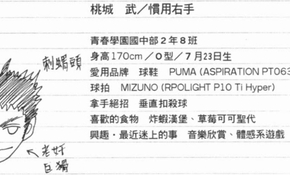 桃城　武／慣用右手
青春學園國中部２年８班
身高170cm／O型／７月23日生
愛用品牌　球鞋　PUMA (ASPIRATION PT063
球拍　MIZUNO (RPOLIGHT P10 Ti Hyper)
拿手絕招　垂直扣殺球
喜歡的食物　炸蝦漢堡、草莓可可聖代
興趣・最近迷上的事　音樂欣賞、體感系遊戲
刺蝟頭